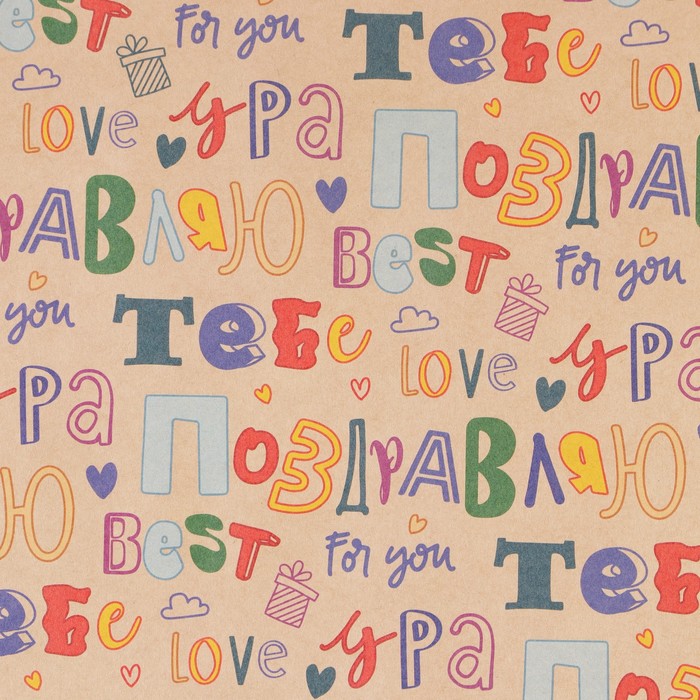 Best For you Тебе
Love ура ПОЗДРА
РАВЛЯЮ Best For you
you Тебе Love ур
РА ПОЗДРАВЛЯЮ
Ю Best For you Те
ебе Love ура П